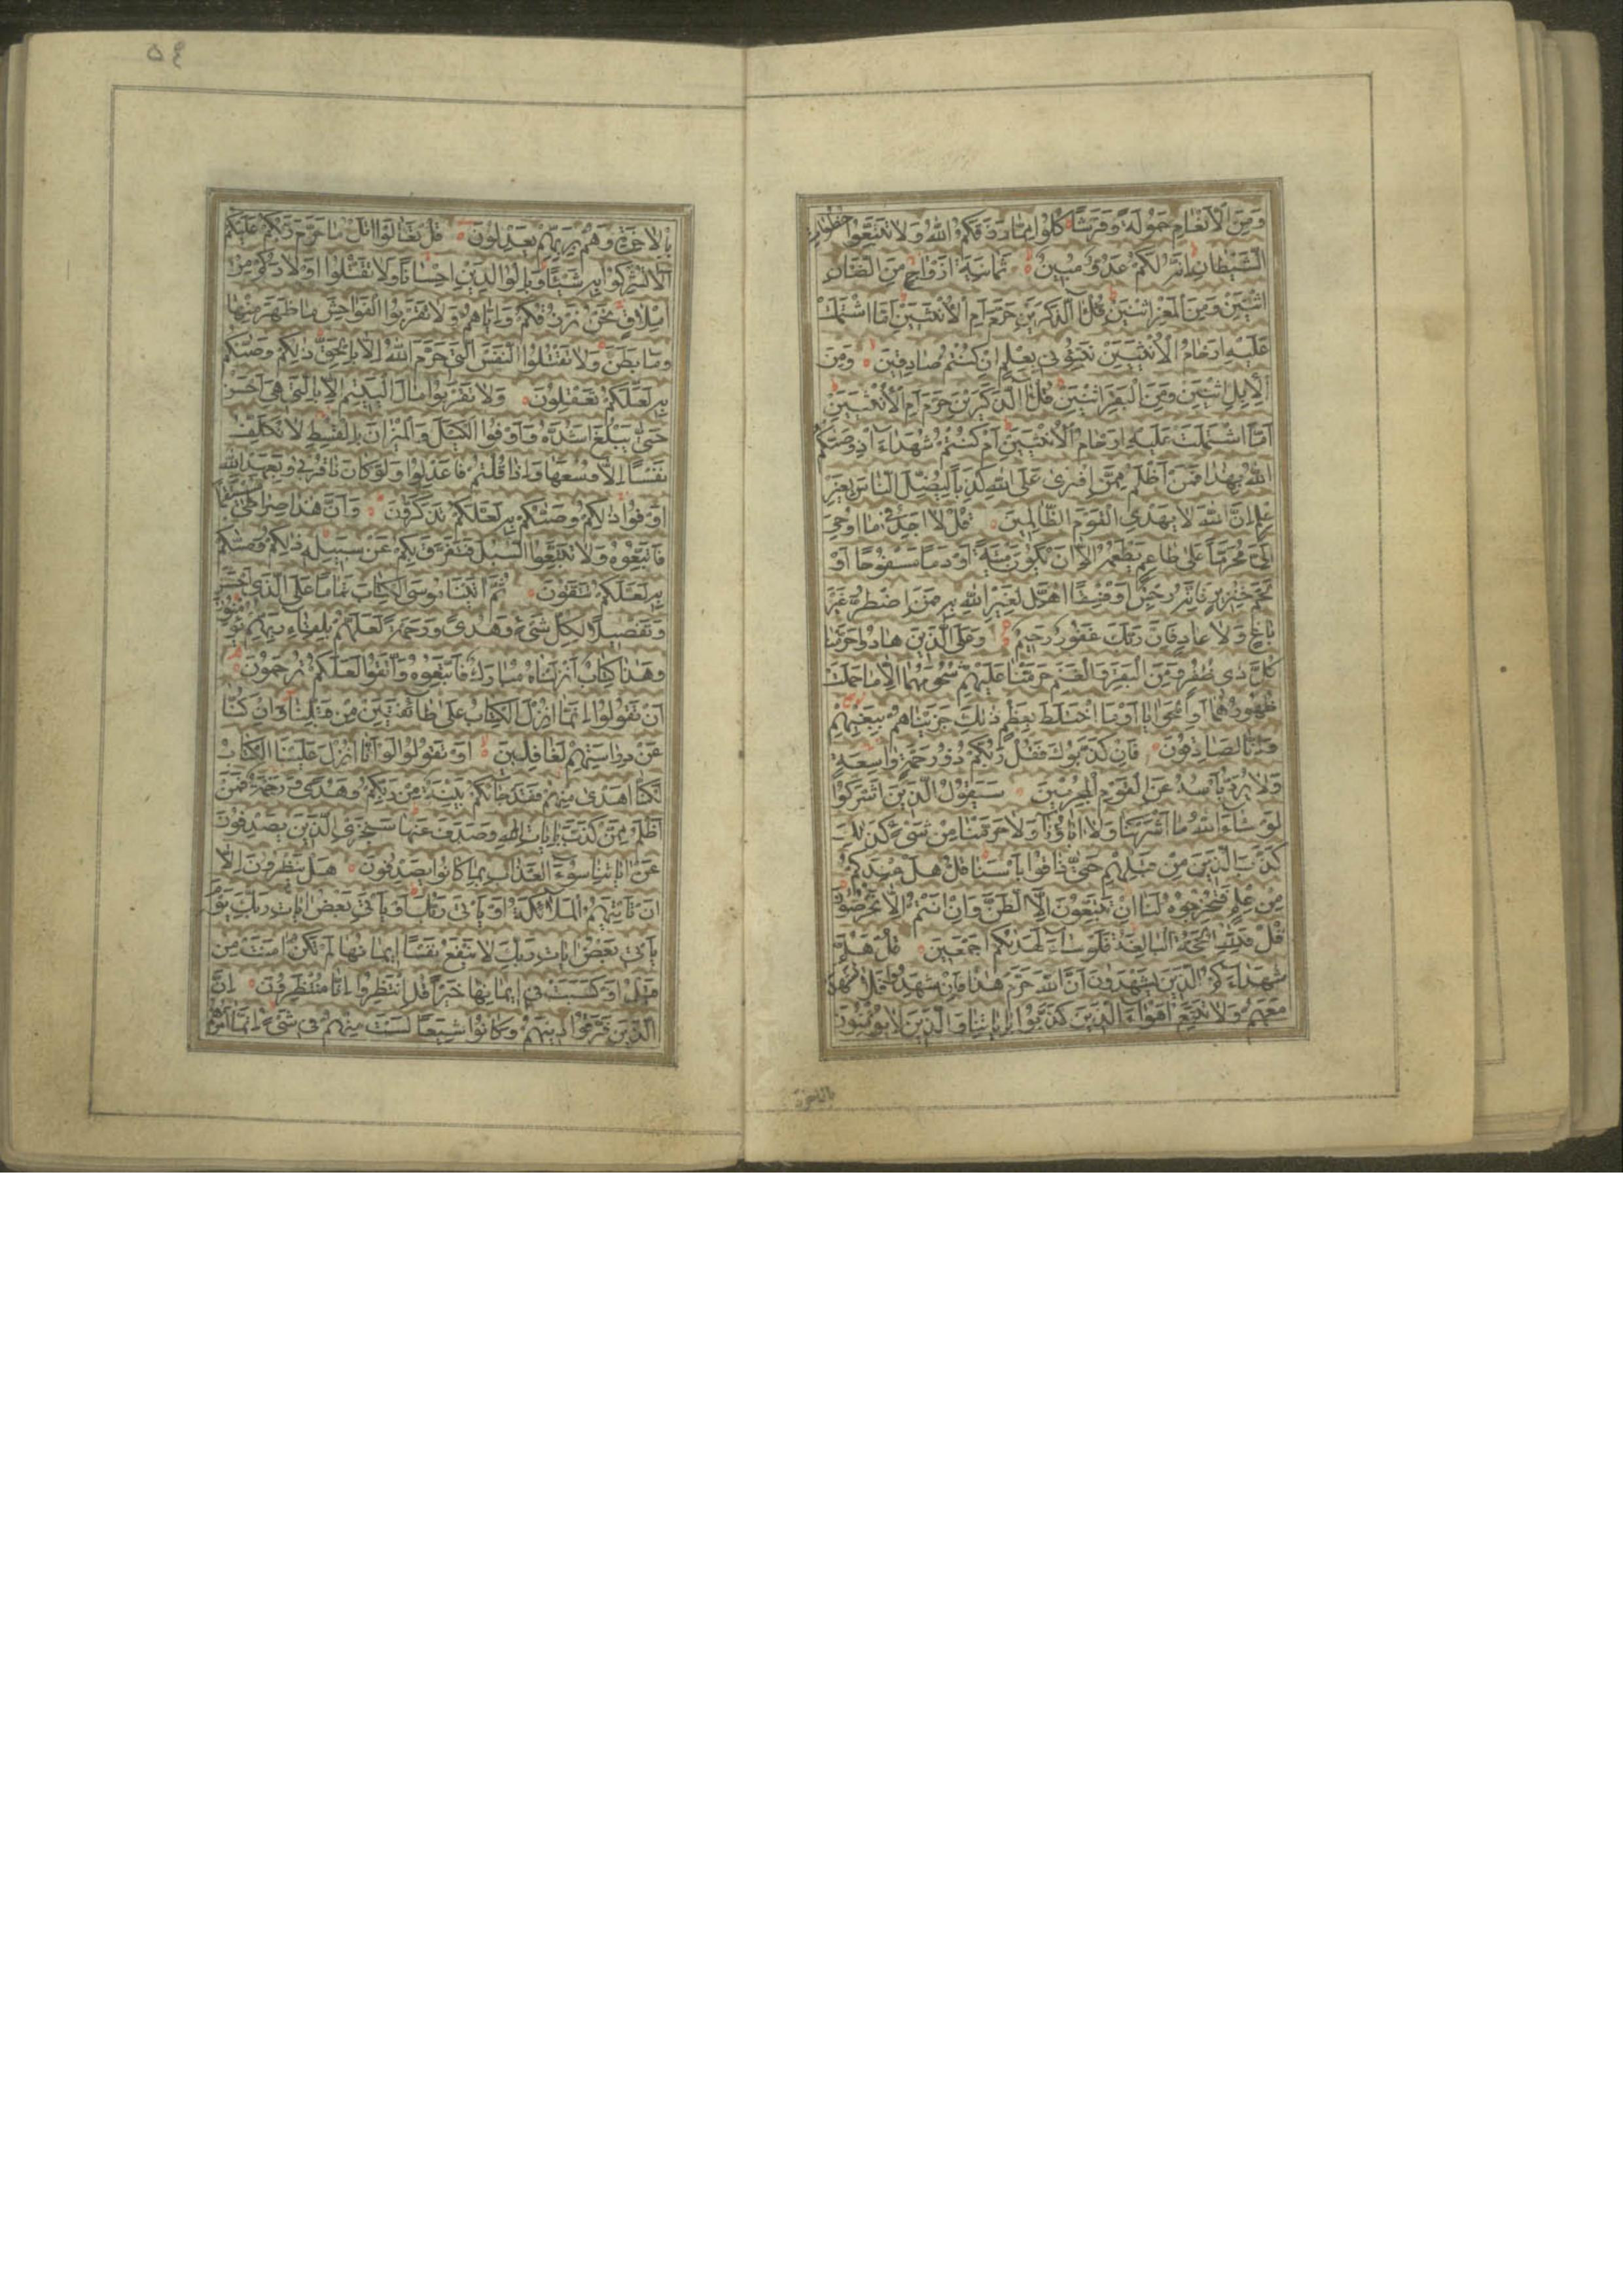 وَمِنَ الْاَنْعَامِ حَمُولَةً وَفَرْشًا كُلُوا مِمَّا رَزَقَكُمُ اللّٰهُ وَلَا تَتَّبِعُوا خُطُوَاتِ
الشَّيْطَانِ اِنَّهُ لَكُمْ عَدُوٌّ مُبِينٌ ثَمَانِيَةَ اَزْوَاجٍ مِنَ الضَّاْنِ
اثْنَيْنِ وَمِنَ الْمَعْزِ اثْنَيْنِ قُلْ آلذَّكَرَيْنِ حَرَّمَ اَمِ الْاُنْثَيَيْنِ اَمَّا اشْتَمَلَتْ
عَلَيْهِ اَرْحَامُ الْاُنْثَيَيْنِ نَبِّئُونِي بِعِلْمٍ اِنْ كُنْتُمْ صَادِقِينَ وَمِنَ
الْاِبِلِ اثْنَيْنِ وَمِنَ الْبَقَرِ اثْنَيْنِ قُلْ آلذَّكَرَيْنِ حَرَّمَ اَمِ الْاُنْثَيَيْنِ
اَمَّا اشْتَمَلَتْ عَلَيْهِ اَرْحَامُ الْاُنْثَيَيْنِ اَمْ كُنْتُمْ شُهَدَاءَ اِذْ وَصّٰىكُمُ
اللّٰهُ بِهٰذَا فَمَنْ اَظْلَمُ مِمَّنِ افْتَرٰى عَلَى اللّٰهِ كَذِبًا لِيُضِلَّ النَّاسَ بِغَيْرِ
عِلْمٍ اِنَّ اللّٰهَ لَا يَهْدِي الْقَوْمَ الظَّالِمِينَ قُلْ لَا اَجِدُ فِي مَا اُوحِيَ
اِلَيَّ مُحَرَّمًا عَلٰى طَاعِمٍ يَطْعَمُهُ اِلَّا اَنْ يَكُونَ مَيْتَةً اَوْ دَمًا مَسْفُوحًا اَوْ
لَحْمَ خِنْزِيرٍ فَاِنَّهُ رِجْسٌ اَوْ فِسْقًا اُهِلَّ لِغَيْرِ اللّٰهِ بِهِ فَمَنِ اضْطُرَّ غَيْرَ
بَاغٍ وَلَا عَادٍ فَاِنَّ رَبَّكَ غَفُورٌ رَحِيمٌ وَعَلَى الَّذِينَ هَادُوا حَرَّمْنَا
كُلَّ ذِي ظُفُرٍ وَمِنَ الْبَقَرِ وَالْغَنَمِ حَرَّمْنَا عَلَيْهِمْ شُحُومَهُمَا اِلَّا مَا حَمَلَتْ
ظُهُورُهُمَا اَوِ الْحَوَايَا اَوْ مَا اخْتَلَطَ بِعَظْمٍ ذٰلِكَ جَزَيْنَاهُمْ بِبَغْيِهِمْ
وَاِنَّا لَصَادِقُونَ فَاِنْ كَذَّبُوكَ فَقُلْ رَبُّكُمْ ذُو رَحْمَةٍ وَاسِعَةٍ
وَلَا يُرَدُّ بَاْسُهُ عَنِ الْقَوْمِ الْمُجْرِمِينَ سَيَقُولُ الَّذِينَ اَشْرَكُوا
لَوْ شَاءَ اللّٰهُ مَا اَشْرَكْنَا وَلَا اٰبَاؤُنَا وَلَا حَرَّمْنَا مِنْ شَيْءٍ كَذٰلِكَ
كَذَّبَ الَّذِينَ مِنْ قَبْلِهِمْ حَتّٰى ذَاقُوا بَاْسَنَا قُلْ هَلْ عِنْدَكُمْ
مِنْ عِلْمٍ فَتُخْرِجُوهُ لَنَا اِنْ تَتَّبِعُونَ اِلَّا الظَّنَّ وَاِنْ اَنْتُمْ اِلَّا تَخْرُصُونَ
قُلْ فَلِلّٰهِ الْحُجَّةُ الْبَالِغَةُ فَلَوْ شَاءَ لَهَدٰىكُمْ اَجْمَعِينَ قُلْ هَلُمَّ
شُهَدَاءَكُمُ الَّذِينَ يَشْهَدُونَ اَنَّ اللّٰهَ حَرَّمَ هٰذَا فَاِنْ شَهِدُوا فَلَا تَشْهَدْ
مَعَهُمْ وَلَا تَتَّبِعْ اَهْوَاءَ الَّذِينَ كَذَّبُوا بِاٰيَاتِنَا وَالَّذِينَ لَا يُؤْمِنُونَ
بالاخرة
٥٤
بِالْاٰخِرَةِ وَهُمْ بِرَبِّهِمْ يَعْدِلُونَ قُلْ تَعَالَوْا اَتْلُ مَا حَرَّمَ رَبُّكُمْ عَلَيْكُمْ
اَلَّا تُشْرِكُوا بِهِ شَيْئًا وَبِالْوَالِدَيْنِ اِحْسَانًا وَلَا تَقْتُلُوا اَوْلَادَكُمْ مِنْ
اِمْلَاقٍ نَحْنُ نَرْزُقُكُمْ وَاِيَّاهُمْ وَلَا تَقْرَبُوا الْفَوَاحِشَ مَا ظَهَرَ مِنْهَا
وَمَا بَطَنَ وَلَا تَقْتُلُوا النَّفْسَ الَّتِي حَرَّمَ اللّٰهُ اِلَّا بِالْحَقِّ ذٰلِكُمْ وَصّٰىكُمْ
بِهِ لَعَلَّكُمْ تَعْقِلُونَ وَلَا تَقْرَبُوا مَالَ الْيَتِيمِ اِلَّا بِالَّتِي هِيَ اَحْسَنُ
حَتّٰى يَبْلُغَ اَشُدَّهُ وَاَوْفُوا الْكَيْلَ وَالْمِيزَانَ بِالْقِسْطِ لَا نُكَلِّفُ
نَفْسًا اِلَّا وُسْعَهَا وَاِذَا قُلْتُمْ فَاعْدِلُوا وَلَوْ كَانَ ذَا قُرْبٰى وَبِعَهْدِ اللّٰهِ
اَوْفُوا ذٰلِكُمْ وَصّٰىكُمْ بِهِ لَعَلَّكُمْ تَذَكَّرُونَ وَاَنَّ هٰذَا صِرَاطِي مُسْتَقِيمًا
فَاتَّبِعُوهُ وَلَا تَتَّبِعُوا السُّبُلَ فَتَفَرَّقَ بِكُمْ عَنْ سَبِيلِهِ ذٰلِكُمْ وَصّٰىكُمْ
بِهِ لَعَلَّكُمْ تَتَّقُونَ ثُمَّ اٰتَيْنَا مُوسَى الْكِتَابَ تَمَامًا عَلَى الَّذِي اَحْسَنَ
وَتَفْصِيلًا لِكُلِّ شَيْءٍ وَهُدًى وَرَحْمَةً لَعَلَّهُمْ بِلِقَاءِ رَبِّهِمْ يُؤْمِنُونَ
وَهٰذَا كِتَابٌ اَنْزَلْنَاهُ مُبَارَكٌ فَاتَّبِعُوهُ وَاتَّقُوا لَعَلَّكُمْ تُرْحَمُونَ
اَنْ تَقُولُوا اِنَّمَا اُنْزِلَ الْكِتَابُ عَلٰى طَائِفَتَيْنِ مِنْ قَبْلِنَا وَاِنْ كُنَّا
عَنْ دِرَاسَتِهِمْ لَغَافِلِينَ اَوْ تَقُولُوا لَوْ اَنَّا اُنْزِلَ عَلَيْنَا الْكِتَابُ
لَكُنَّا اَهْدٰى مِنْهُمْ فَقَدْ جَاءَكُمْ بَيِّنَةٌ مِنْ رَبِّكُمْ وَهُدًى وَرَحْمَةٌ فَمَنْ
اَظْلَمُ مِمَّنْ كَذَّبَ بِاٰيَاتِ اللّٰهِ وَصَدَفَ عَنْهَا سَنَجْزِي الَّذِينَ يَصْدِفُونَ
عَنْ اٰيَاتِنَا سُوءَ الْعَذَابِ بِمَا كَانُوا يَصْدِفُونَ هَلْ يَنْظُرُونَ اِلَّا
اَنْ تَاْتِيَهُمُ الْمَلٰئِكَةُ اَوْ يَاْتِيَ رَبُّكَ اَوْ يَاْتِيَ بَعْضُ اٰيَاتِ رَبِّكَ يَوْمَ
يَاْتِي بَعْضُ اٰيَاتِ رَبِّكَ لَا يَنْفَعُ نَفْسًا اِيمَانُهَا لَمْ تَكُنْ اٰمَنَتْ مِنْ
قَبْلُ اَوْ كَسَبَتْ فِي اِيمَانِهَا خَيْرًا قُلِ انْتَظِرُوا اِنَّا مُنْتَظِرُونَ اِنَّ
الَّذِينَ فَرَّقُوا دِينَهُمْ وَكَانُوا شِيَعًا لَسْتَ مِنْهُمْ فِي شَيْءٍ اِنَّمَا اَمْرُهُمْ